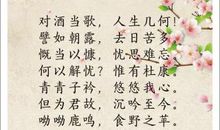 对酒当歌，人生几何！
譬如朝露，去日苦多。
慨当以慷，忧思难忘。
何以解忧？惟有杜康。
青青子衿，悠悠我心。
但为君故，沉吟至今。
呦呦鹿鸣，食野之苹。